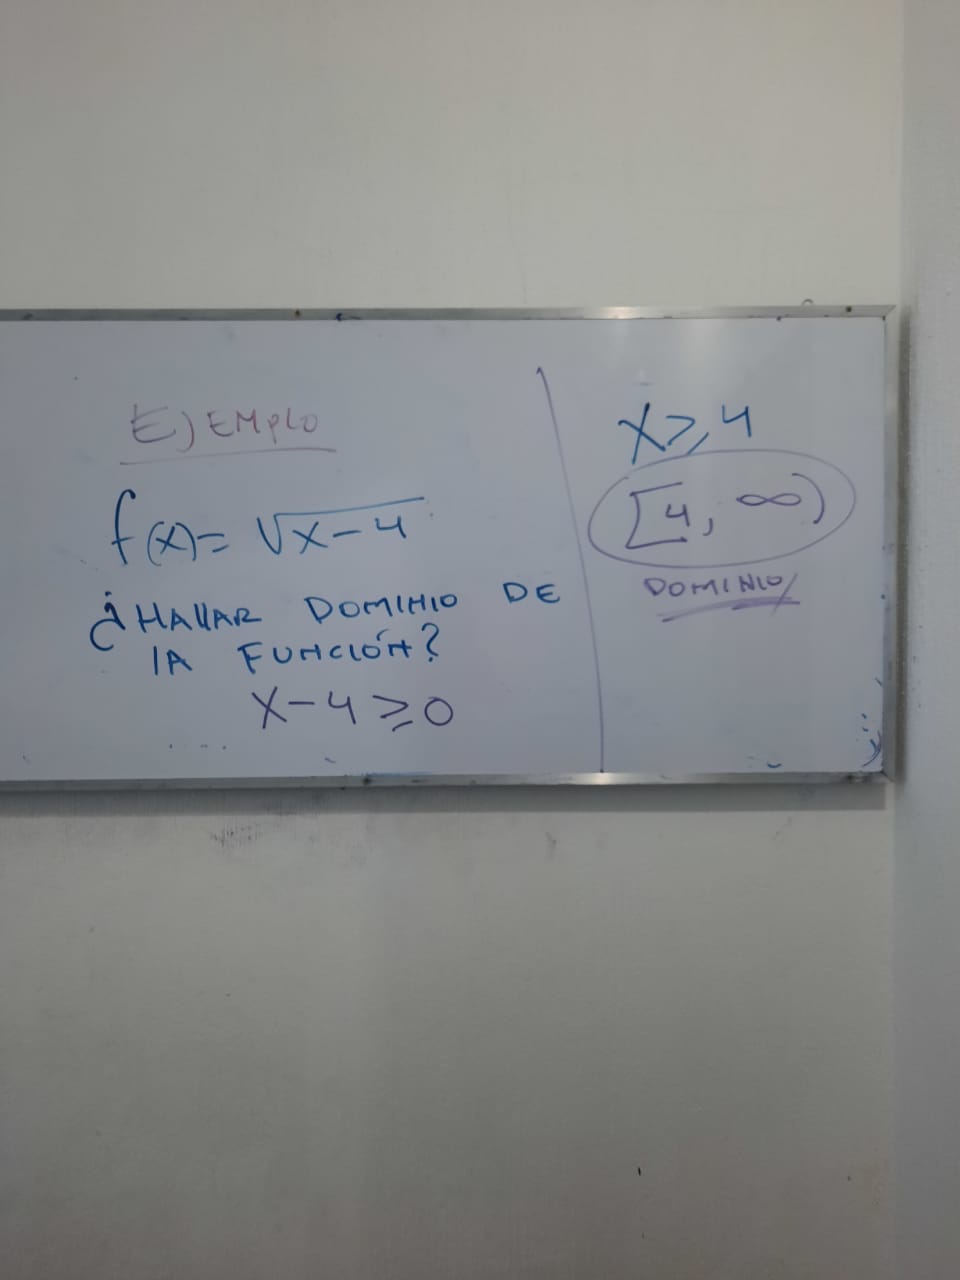 EJEMPLO
f(x)= √x-4
¿HALLAR DOMINIO DE
LA FUNCIÓN?
x-4≥0
x≥4
[4, ∞)
DOMINIO